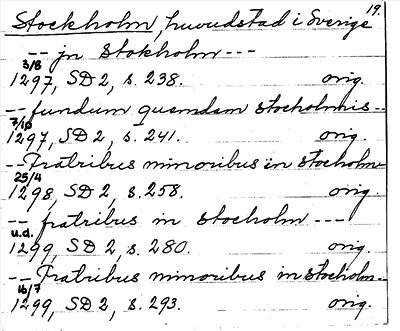 Stockholm, huvudstad i Sverige 19.
-- jn Stokholm ---
3/8
1297, SD 2, s. 238. orig.
-- fundum quemdam stocholmis --
7/10
1297, SD 2, s. 241. orig.
-- Fratribus minoribus in stocholm --
25/4
1298, SD 2, s. 258. orig.
-- fratribus in stocholm ---
u.d.
1299, SD 2, s. 280. orig.
-- Fratribus minoribus in stocholm --
16/7
1299, SD 2, s. 293. orig.